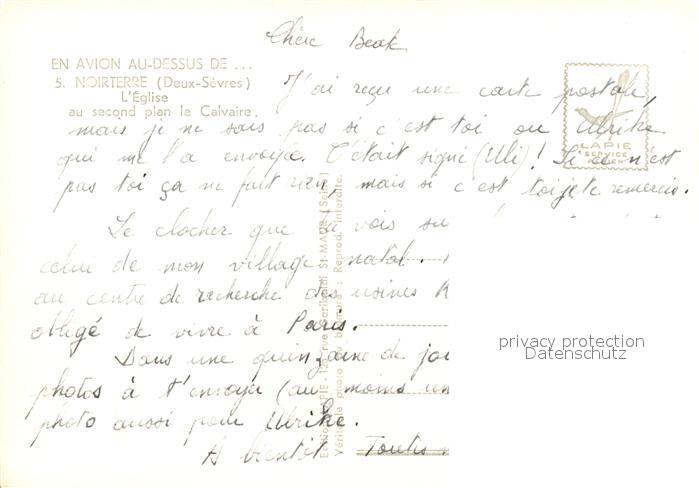 Chère Beak
EN AVION AU-DESSUS DE ...
5. NOIRTERRE (Deux-Sèvres)
L'Église
au second plan le Calvaire.
LAPIE
SERVICE
J'ai reçu une carte postale,
mais je ne sais pas si c'est toi ou Ulrike
qui me l'a envoyée. C'était signé (Uli)! Si ce n'est
pas toi ça ne fait rien, mais si c'est toi je te remercis.
Le clocher que tu vois su
celui de mon village natal.
au centre de recherche des usines R
obligé de vivre à Paris.
Dans une quinzaine de jou
photos à t'envoyer (au moins un
photo aussi pour Ulrike.
A bientôt Toutes
Véritable photo au bromure : Reprod. interdite.
privacy protection
Datenschutz